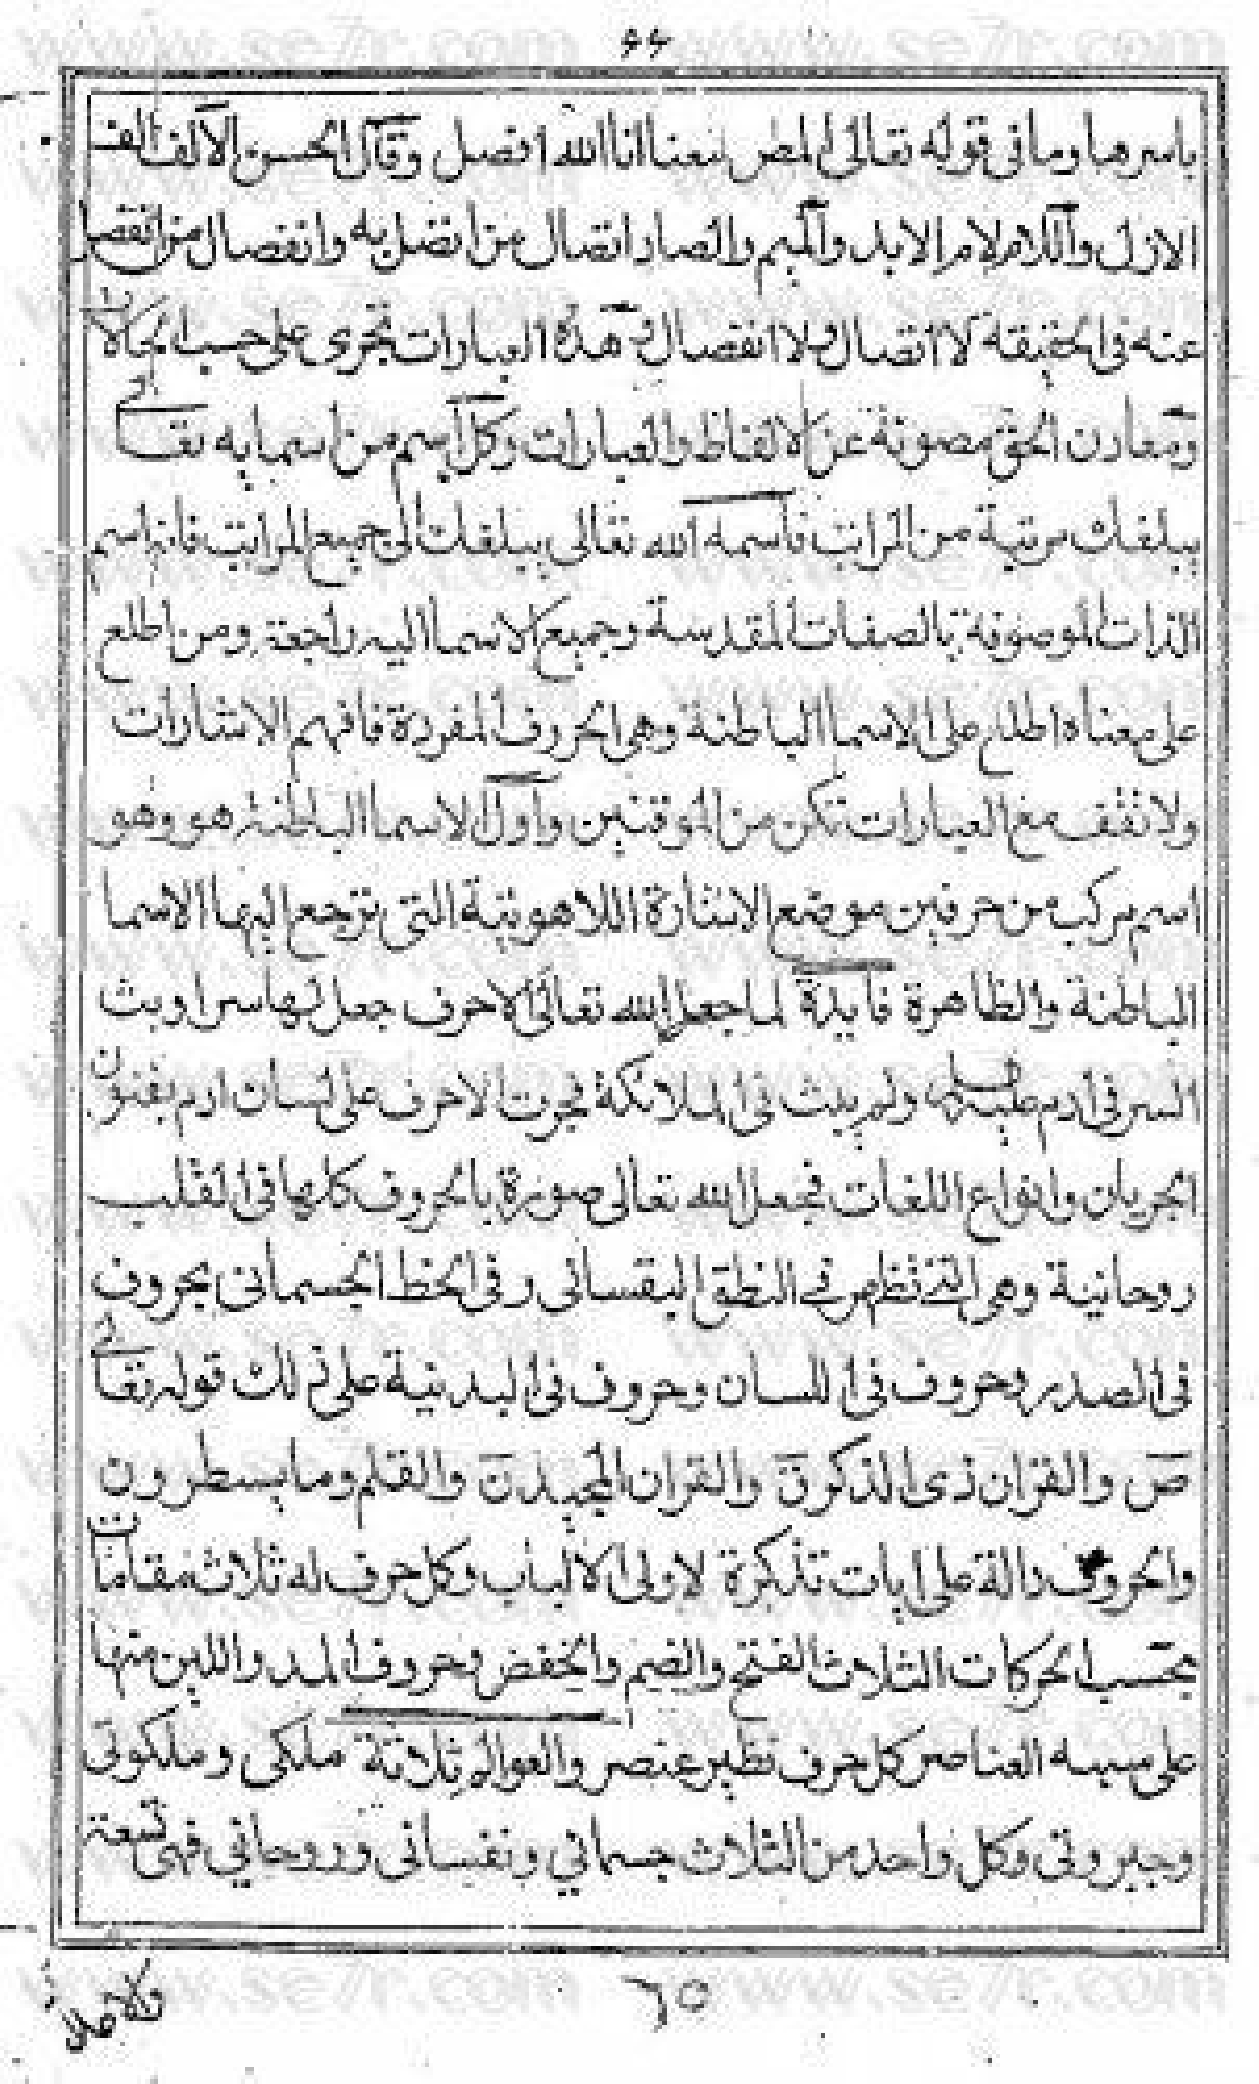 ٦٤
باسرها وما فى قوله تعالى المص معنا انا الله افصل وقال الحسن الالف الف
الازل واللام لام الابد والميم والصاد اتصال من اتصل به وانفصال من انفصل
عنه فى الحقيقة لا اتصال ولا انفصال هذه العبارات تجرى على حسب
الحق مصونة عن الالفاظ والعبارات وكل اسم من اسمايه تعالى
يبلغك مرتبة من المراتب فاسمه الله تعالى يبلغك الى جميع المراتب فانه اسم
الذات الموصوفة بالصفات المقدسة وجميع الاسما اليه راجعة ومن اطلع
على معناه اطلع على الاسما الباطنة وهى الحروف المفردة فافهم الاشارات
ولا تقف مع العبارات تكن من الموقنين واول الاسما الباطنة هو وهو
اسم مركب من حرفين موضع الاشارة اللاهوتية التى ترجع اليها الاسما
الباطنة والظاهرة فايدة لما جعل الله تعالى الاحرف جعل لها سرا وبث
السر فى ادم عليه السلام ولم يبث فى الملائكة فجرت الاحرف على لسان ادم بفنون
الجريان وانواع اللغات فجعل الله تعالى صورة بالحروف كلها فى القلب
روحانية وهى التى تظهر فى النطق النفسانى وفى الخط الجسمانى بحروف
فى الصدر وحروف فى اللسان وحروف فى البدنية على ذلك قوله تعالى
ص والقران ذى الذكر ق والقران المجيد ن والقلم وما يسطرون
والحروف دالة على ايات تذكرة لاولى الالباب وكل حرف له ثلاث مقامات
بحسب الحركات الثلاث الفتح والضم والخفض وحروف المد واللين منها
على العناصر كل حرف نظير عنصر والعوالم ثلاثة ملكى وملكوتى
وجبروتى وكل واحد من الثلاث جسمانى ونفسانى وروحانى فهى تسعة
٦٥